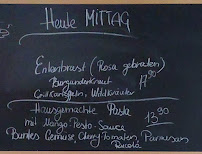 Heute MITTAG
Entenbrust (Rosa gebraten)
Burgunderkraut 17,90
Grillkartoffeln, Wildkräuter
Hausgemachte Pasta
mit Mango-Pesto-Sauce 13,90
Buntes Gemüse, Cherry-Tomaten, Parmesan
Rucola